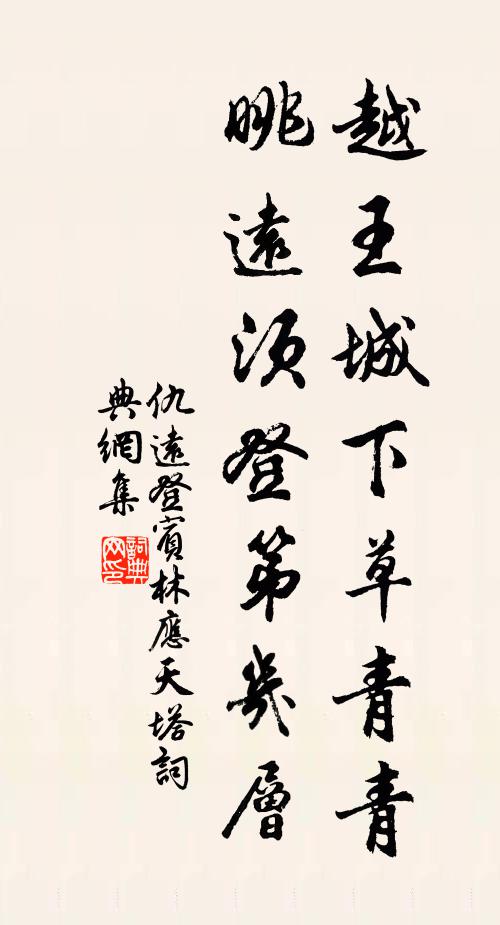 越王城下草青青
眺遠須登第幾層
仇遠登賓林應天塔詞
典網集
詞典
網印